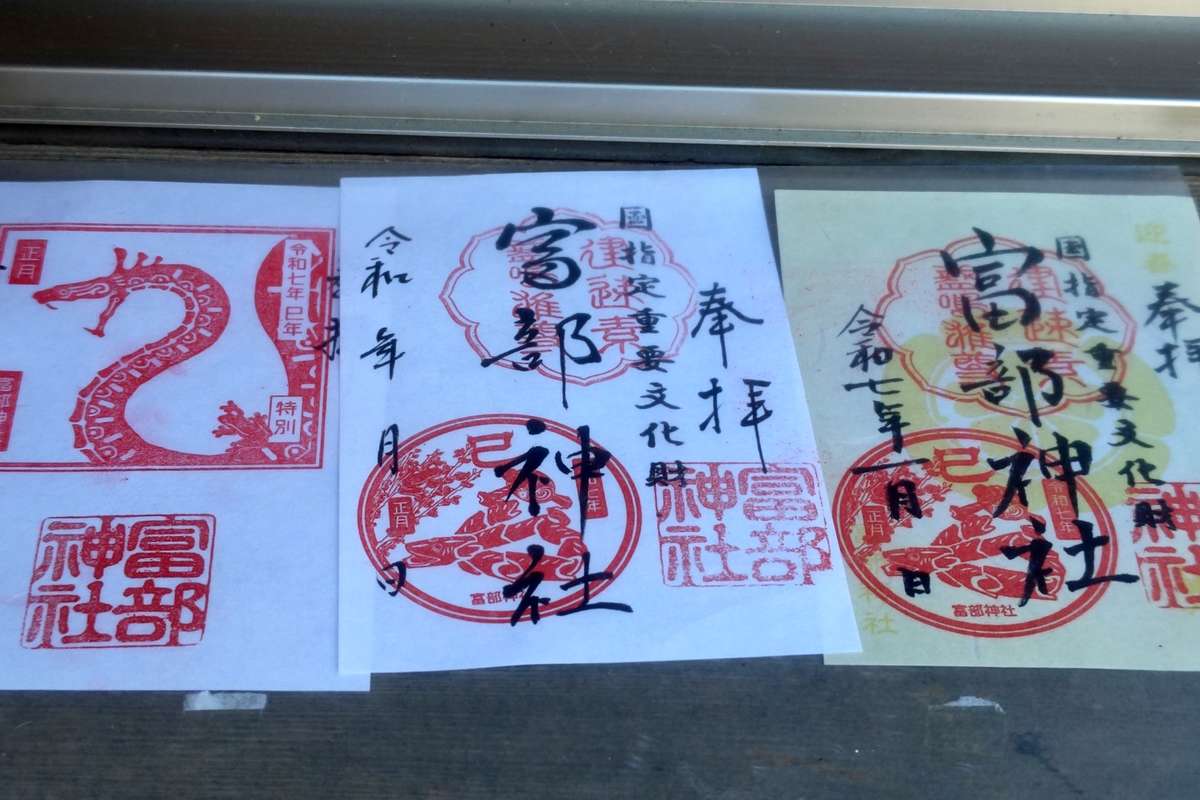 正月
令和七年 巳年
特別
富部神社
奉拝
国指定重要文化財
富部神社
令和 年 月 日
巳
正月
富部神社
富部神社
迎春
奉拝
国指定重要文化財
富部神社
令和七年一月 日
巳
正月
富部神社